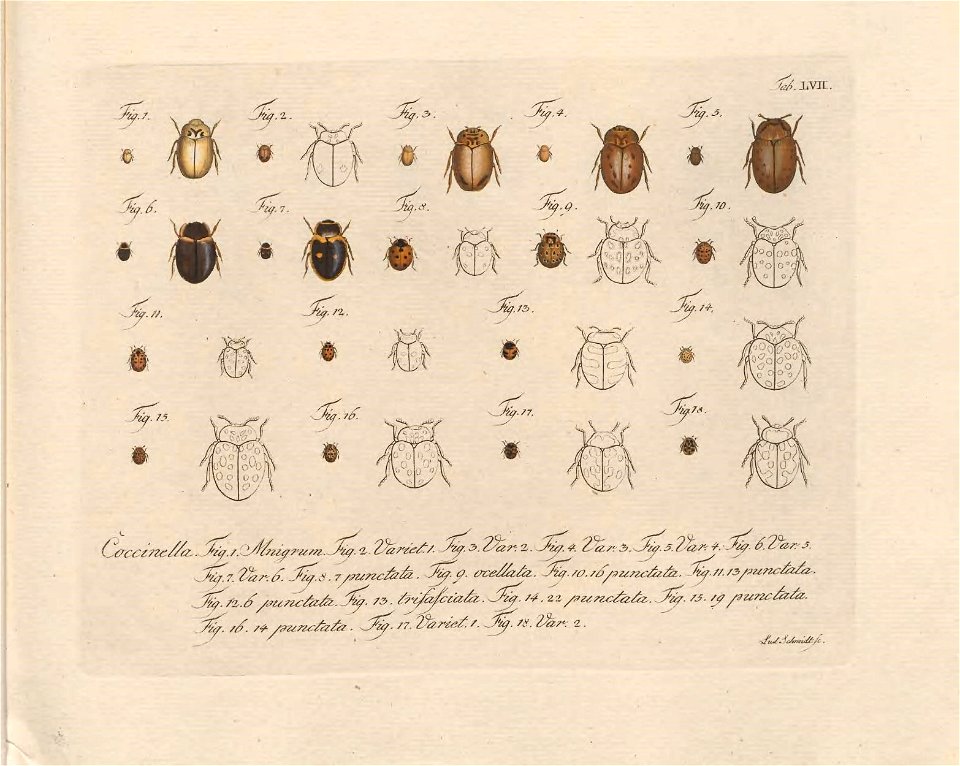 Tab. LVII.
Fig. 1. Fig. 2. Fig. 3. Fig. 4. Fig. 5.
Fig. 6. Fig. 7. Fig. 8. Fig. 9. Fig. 10.
Fig. 11. Fig. 12. Fig. 13. Fig. 14.
Fig. 15. Fig. 16. Fig. 17. Fig. 18.
Coccinella. Fig. 1. Mnigrum. Fig. 2. Variet. 1. Fig. 3. Var. 2. Fig. 4. Var. 3. Fig. 5. Var. 4. Fig. 6. Var. 5.
Fig. 7. Var. 6. Fig. 8. 7 punctata. Fig. 9. ocellata. Fig. 10. 16 punctata. Fig. 11. 13 punctata.
Fig. 12. 6 punctata. Fig. 13. trifasciata. Fig. 14. 22 punctata. Fig. 15. 19 punctata.
Fig. 16. 14 punctata. Fig. 17. Variet. 1. Fig. 18. Var. 2.
Lud. Schmidt sc.